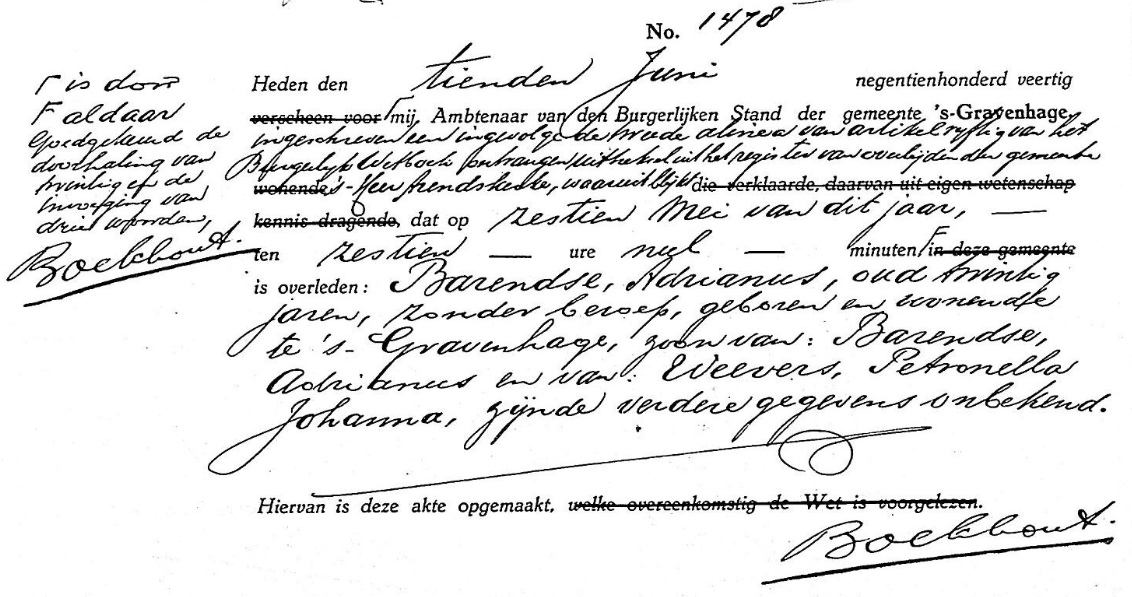 No. 1478
Heden den tienden Juni negentienhonderd veertig
verscheen voor Γ mij, Ambtenaar van den Burgerlijken Stand der gemeente 's-Gravenhage,
ingeschreven een ingevolge de tweede alinea van artikel vyftig van het
Burgerlyk Wetboek ontvangen uittreksel uit het register van overlijden der gemeente
wonende 's-Heer Arendskerke, waaruit blijkt die verklaarde, daarvan uit eigen wetenschap
kennis dragende, dat op zestien Mei van dit jaar, —
ten zestien — ure nul — minuten F in deze gemeente
is overleden: Barendse, Adrianus, oud twintig
jaren, zonder beroep, geboren en wonende
te 's-Gravenhage, zoon van: Barendse,
Adrianus en van: Weevers, Petronella
Johanna, zijnde verdere gegevens onbekend.
Hiervan is deze akte opgemaakt, welke overeenkomstig de Wet is voorgelezen.
Boekhout.
Γ is door
F aldaar
Goedgekeurd de
doorhaling van
twintig en de
invoeging van
drie woorden,
Boekhout.